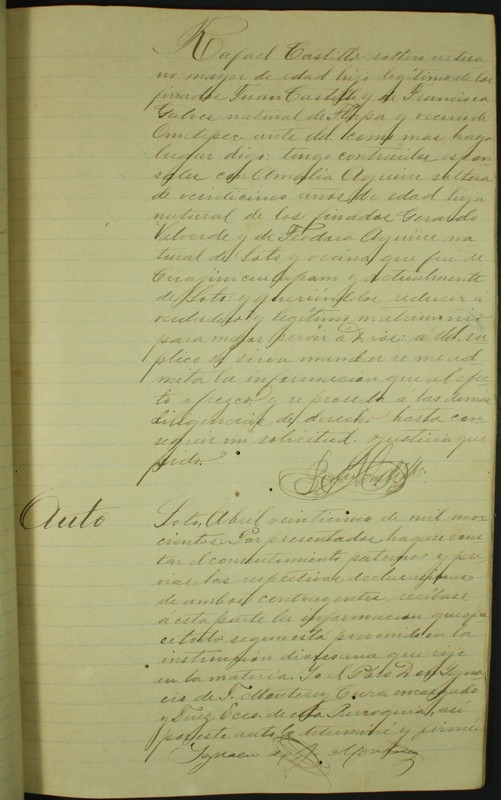 Rafael Castillo soltero artesa
no mayor de edad hijo legitimo de los
finados Juan Castillo y de Francisca
Galves natural de Tlapa y vecino de
Ometepec ante Ud. como mas haya
lugar digo: tengo contraidos espon
sales con Amalia Aguirre soltera
de veinticinco años de edad hija
natural de los finados Gerardo
Valverde y de Teodora Aguirre na
tural de Soto y vecina que fue de
y actualmente
de Soto: y queriendolos reducir a
verdadero y legitimo matrimonio
para mejor servir á Dios: á Ud. su
plico se sirva mandar se me ad
mita la informacion que al efec
to ofrezco y se proceda a las demas
diligencias de derecho hasta con
seguir mi solicitud justicia que
pido.
Auto
Soto, Abril veinticinco de mil nove
cientos. Por presentado hagase cons
tar el consentimiento paterno y pre
vias las respectivas declaraciones
de ambos contrayentes, recibase
á esta parte la informacion que ofre
ce todo segun está prevenido en la
instruccion diocesana que rije
en la materia. Yo el Pbro. Don Igna
cio de J. Monteroz Cura encargado
y Juez Ecco. de esta Parroquia, así
por este auto lo determiné y firmé.
Ignacio de J.